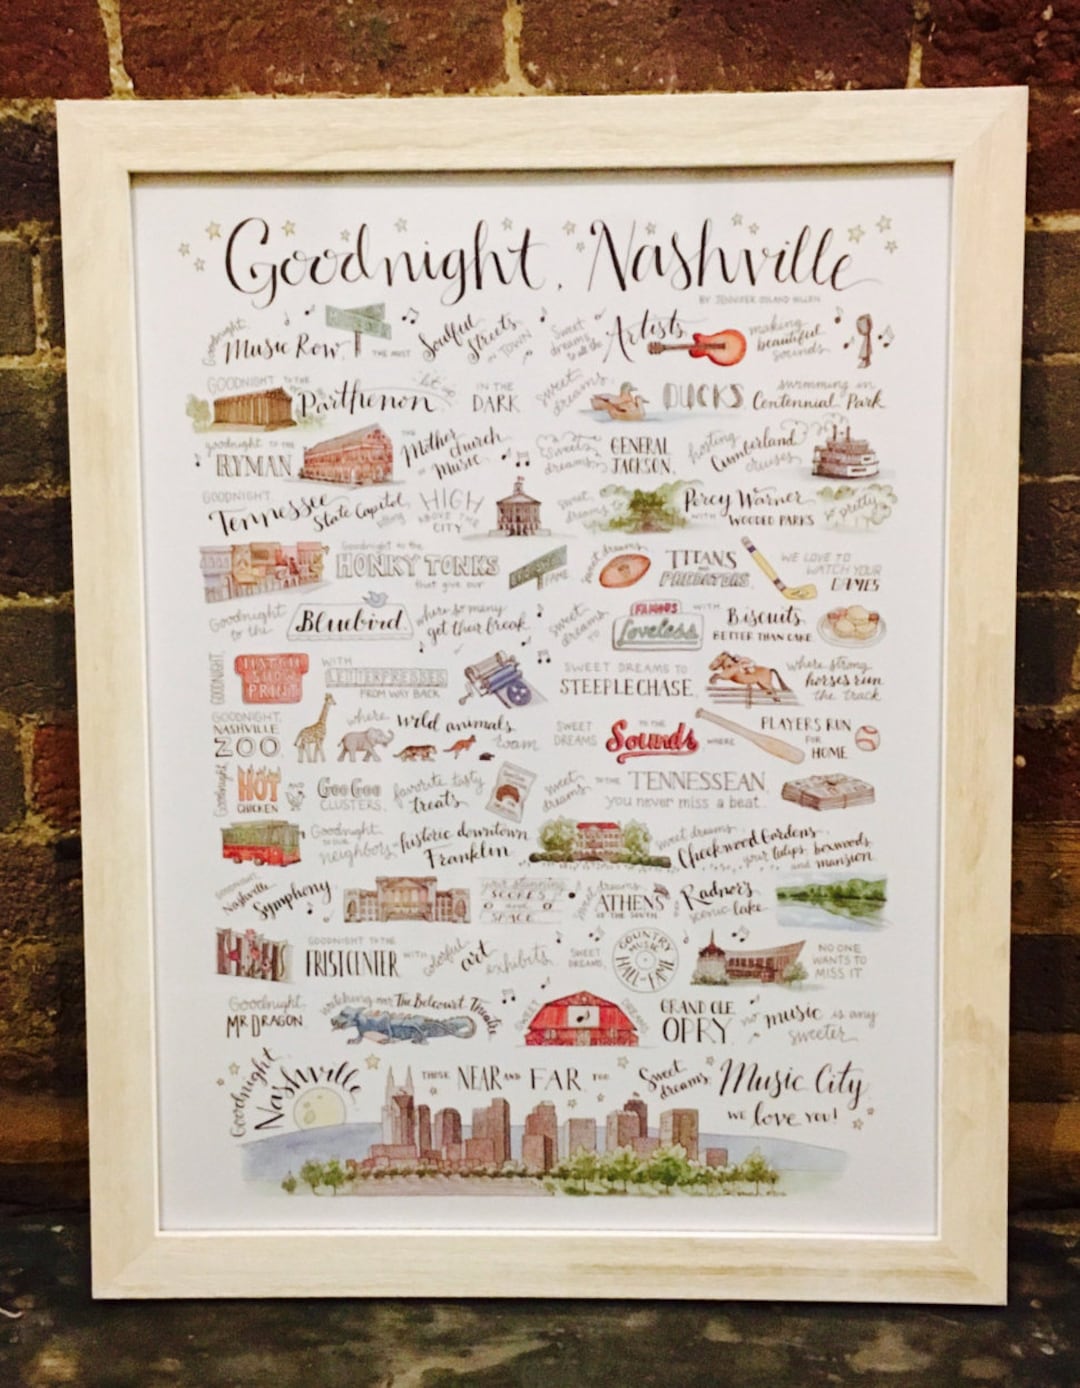 Goodnight, Nashville
Goodnight, Music Row, THE MOST Soulful Streets IN TOWN Sweet dreams to all the Artists making beautiful sounds
GOODNIGHT TO THE Parthenon IN THE DARK sweet dreams, DUCKS, swimming in Centennial Park
goodnight TO THE RYMAN THE Mother church of Music Sweet dreams GENERAL JACKSON, hosting Cumberland cruises
GOODNIGHT, Tennessee State Capitol, sitting HIGH ABOVE THE CITY sweet dreams to Percy Warner WITH WOODED PARKS so pretty
Goodnight to the HONKY TONKS that give our FAME sweet dreams TITANS AND PREDATORS, WE LOVE TO WATCH YOUR GAMES
Goodnight to the Bluebird where so many get their break sweet dreams TO FAMOUS Loveless WITH Biscuits BETTER THAN CAKE
GOODNIGHT, HATCH SHOW PRINT WITH LETTERPRESSES FROM WAY BACK SWEET DREAMS TO STEEPLECHASE, where strong horses run the track
GOODNIGHT, NASHVILLE ZOO, where wild animals roam SWEET DREAMS TO THE Sounds WHERE PLAYERS RUN FOR HOME
Goodnight, HOT CHICKEN GooGoo CLUSTERS, favorite tasty treats sweet dreams TO THE TENNESSEAN, you never miss a beat.
Goodnight TO OUR neighbors historic downtown Franklin sweet dreams, Cheekwood Gardens, your tulips, boxwoods, and mansion
GOODNIGHT, Nashville Symphony your stunning SCORES and SPACE sweet dreams, ATHENS OF THE SOUTH, Radnor's scenic lake
GOODNIGHT TO THE FRIST CENTER WITH colorful art exhibits SWEET DREAMS, COUNTRY MUSIC HALL of FAME NO ONE WANTS TO MISS IT
Goodnight MR DRAGON watching over The Belcourt Theatre SWEET DREAMS GRAND OLE OPRY, no music is any sweeter
Goodnight Nashville THOSE NEAR AND FAR Sweet dreams, Music City,
WE love YOU!